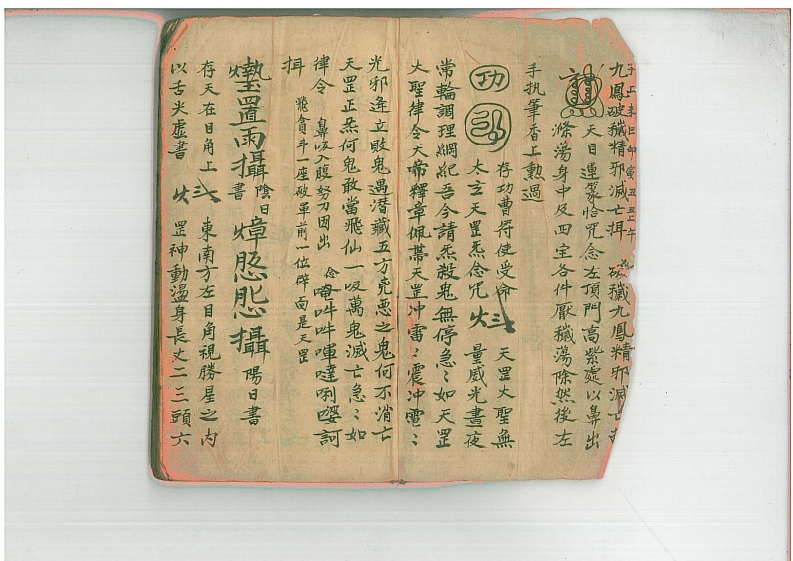 子上未巳卯寅丑丑上午
九鳳破穢精邪滅亡挕 破穢九鳳精邪滅亡
天日運篆恰咒念左頂門高紫處以鼻出
滌湯身中及四宝各件厭穢蕩除然後左
手执筆香上勲過
功 存功曹符使受命
太玄天罡炁念咒 天罡大聖無量威光晝夜
常輪調理綱紀吾今請炁殺鬼無停急〻如天罡
大聖律令大帝釋章佩蓆天罡冲雷〻震冲電〻
光邪逢立敗鬼遇潜藏五方克恶之鬼何不消亡
天罡正炁何鬼敢當飛仙一吸萬鬼滅亡急〻如
律令 鼻吸入腹努刀因出 念唵吽吽㖶噠唎㗲訶
挕 貪斗一座破軍前一位辟面是天罡
置雨攝書陰日 攝陽日書
存天在目角上 東南方左目角視勝星之内
以舌尖虚書 罡神動盪身長丈二三頭六